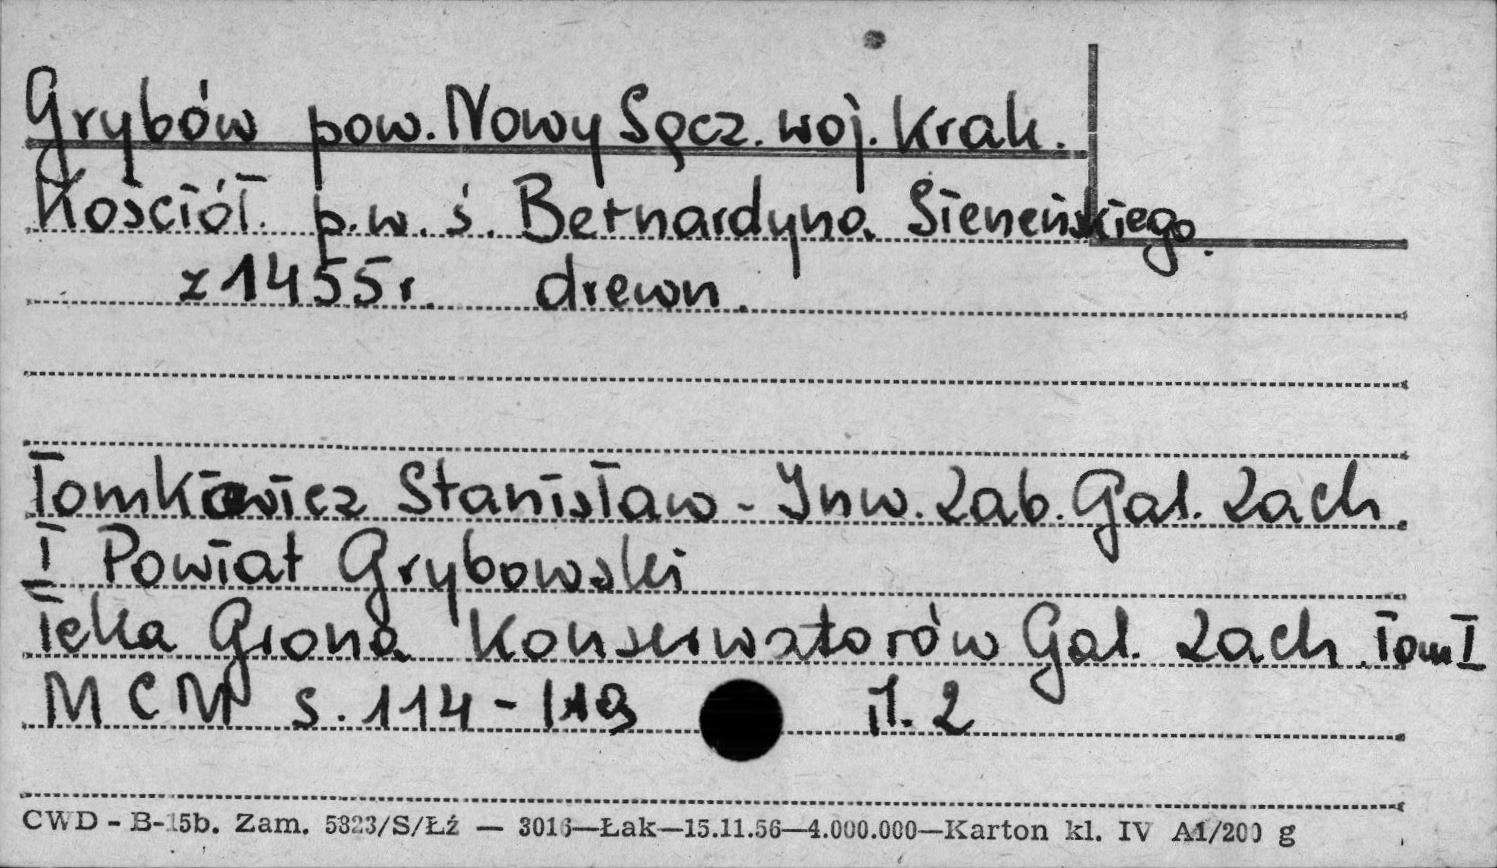 Grybów pow. Nowy Sącz. woj. Krak.
Kościół p.w. ś. Bernardyna Sieneńskiego.
z 1455 r. drewn.
Tomkiewicz Stanisław - Inw. Zab. Gal. Zach.
I Powiat Grybowski
Teka Grona Konserwatorów Gal. Zach. Tom I
MCM s. 114 - 119 il. 2
CWD - B-15b. Zam. 5823/S/Łź — 3016—Łak—15.11.56—4.000.000—Karton kl. IV A1/200 g